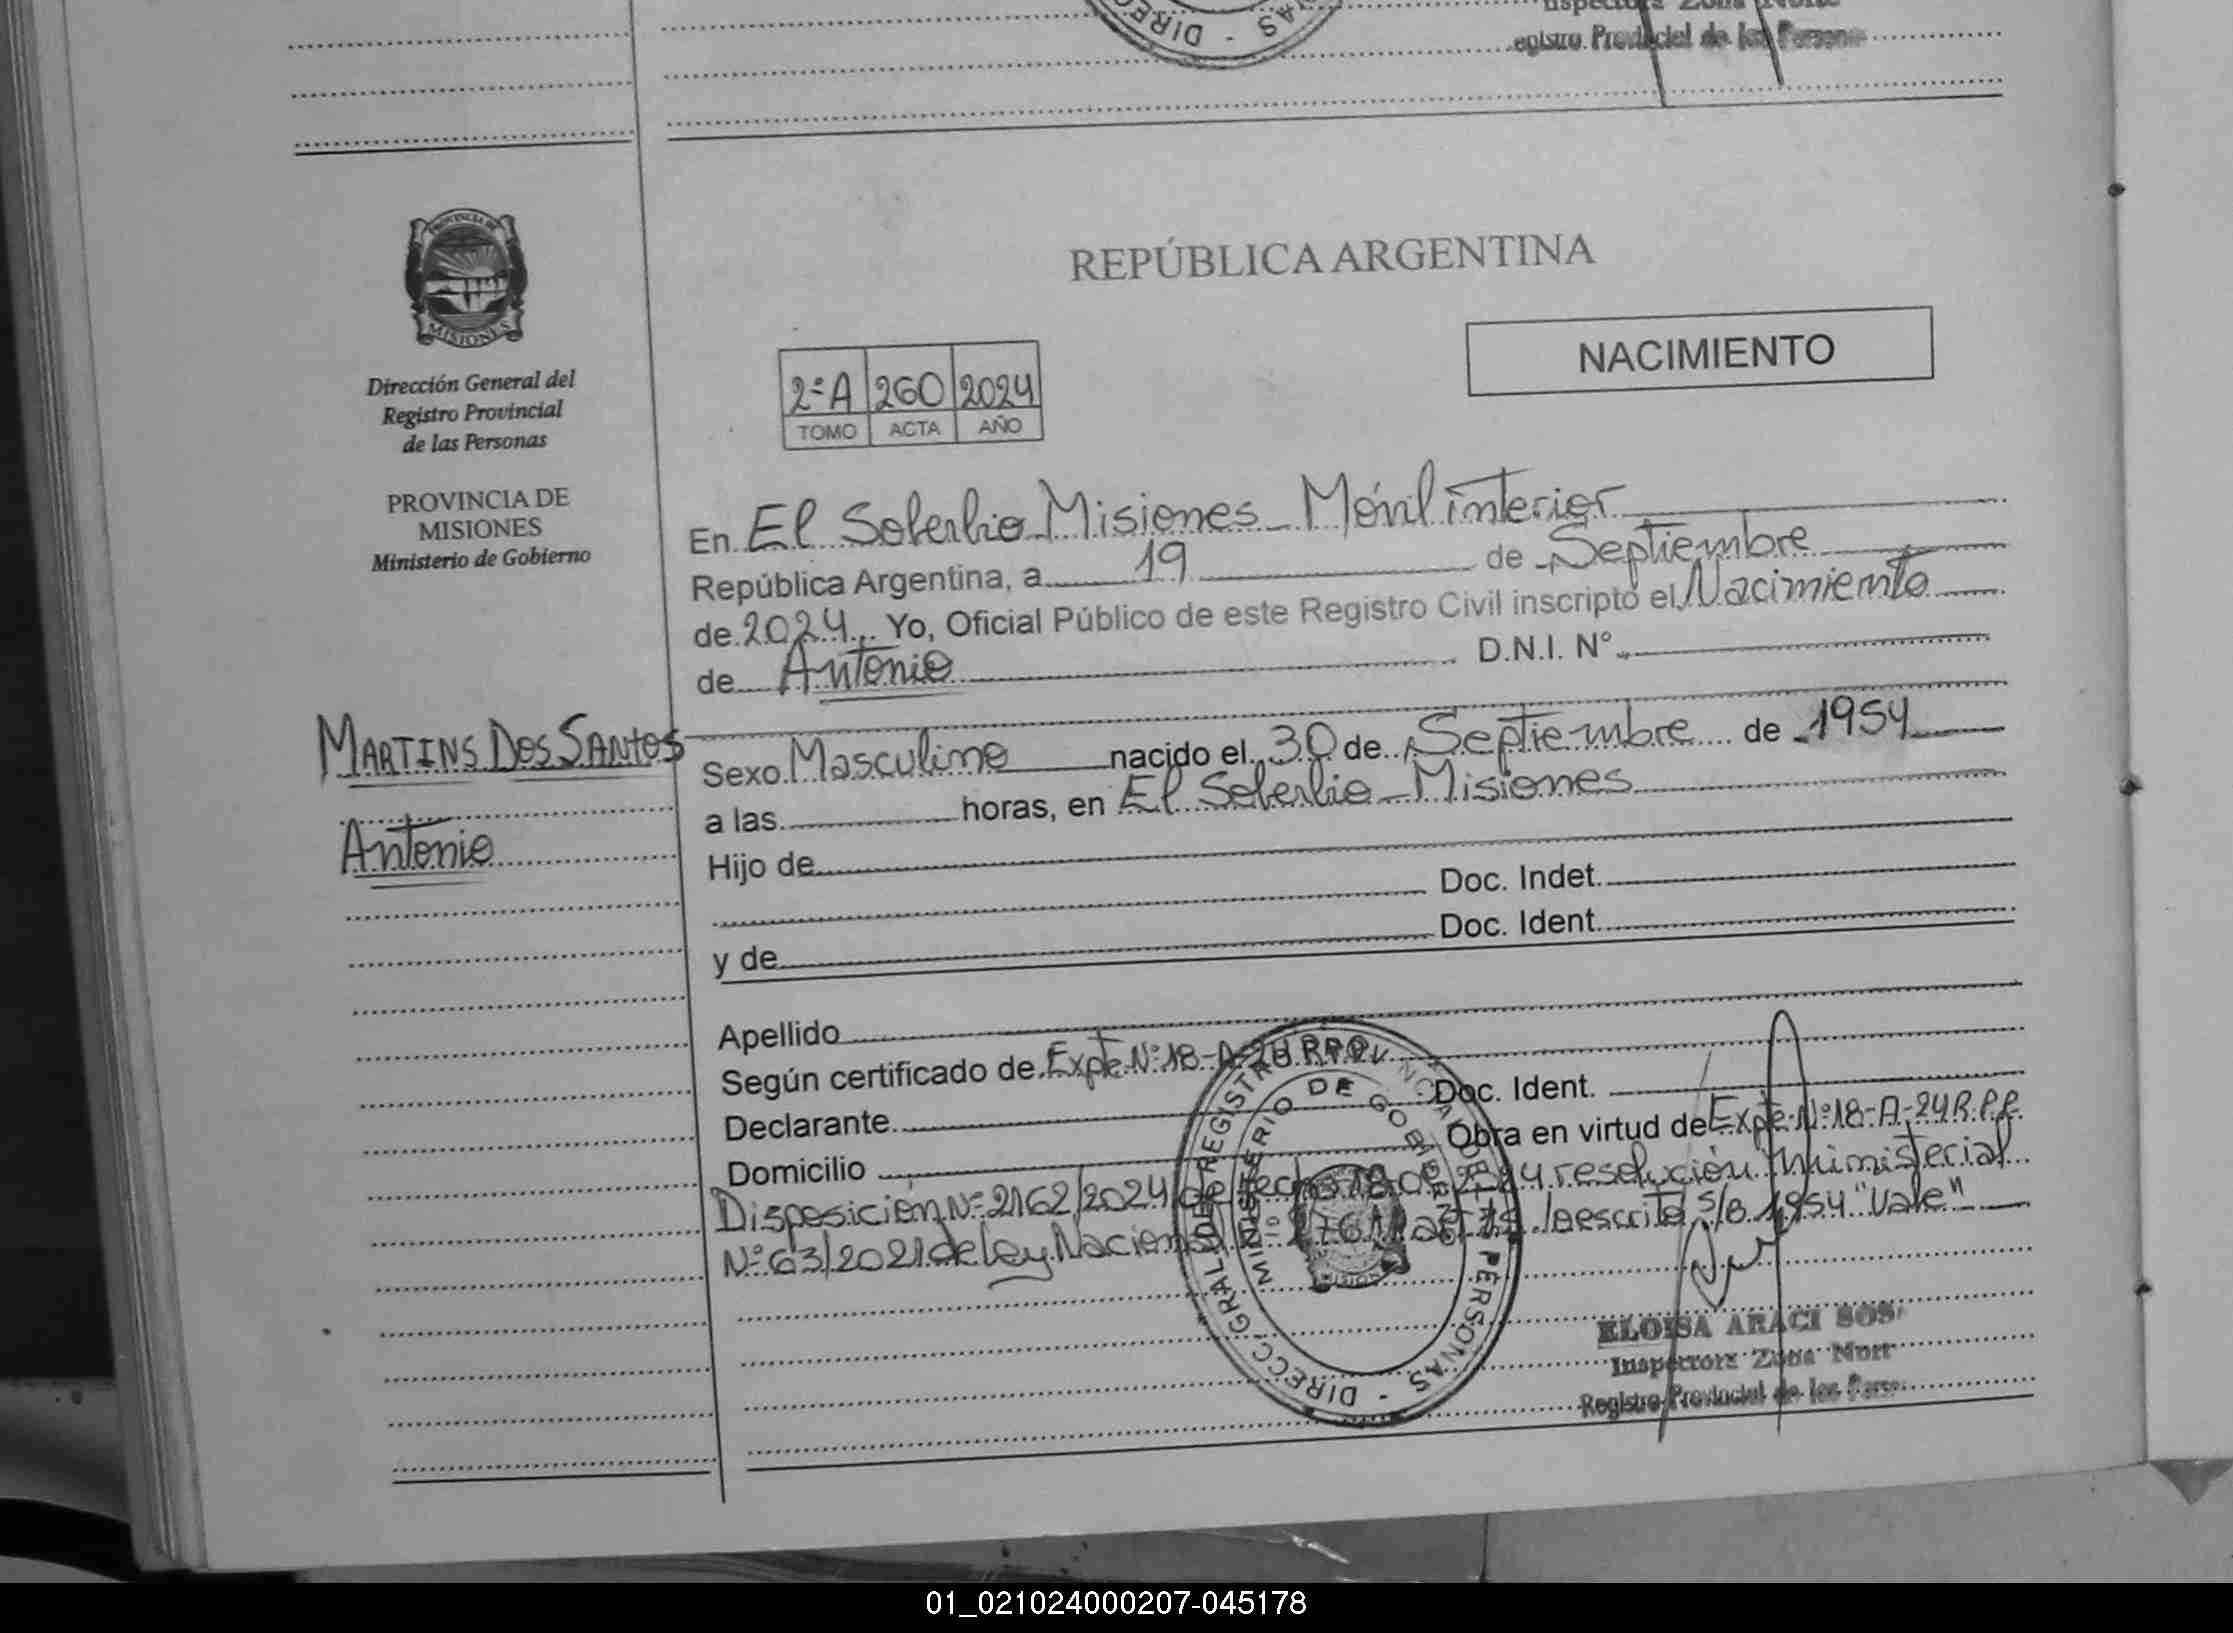 DIREC
- DIRECC
NAS
Zona Norte
Registro Provincial de las Persona
PROVINCIA DE
MISIONES
Dirección General del
Registro Provincial
de las Personas
PROVINCIA DE
MISIONES
Ministerio de Gobierno
MARTINS DOS SANTOS
Antonio
REPÚBLICA ARGENTINA
NACIMIENTO
2ºA 260 2024
TOMO ACTA AÑO
En El Soberbio Misiones - Móvil interior
República Argentina, a 19 de Septiembre
de 2024 Yo, Oficial Público de este Registro Civil inscripto el Nacimiento
de Antonio D.N.I. Nº
Sexo Masculino nacido el 30 de Septiembre de 1954
a las horas, en El Soberbio - Misiones
Hijo de
Doc. Indet.
y de Doc. Ident.
Apellido
Según certificado de Expte Nº 18-A-24 R.P.P.
Declarante Doc. Ident.
Domicilio Obra en virtud de Expte Nº 18-A-24 R.P.P.
Disposición Nº 2162/2024 de fecha 18 resolución Ministerial
Nº 63/2021 de ley Nacional s/b 1954 "Vale"
DIRECC GRAL DE REGISTRO PROVINCIAL DE LAS PERSONAS
MINISTERIO DE GOBIERNO
ELOISA ARACI SOSA
Inspectora Zona Nort
Registro Provincial de las Perso
01_021024000207-045178